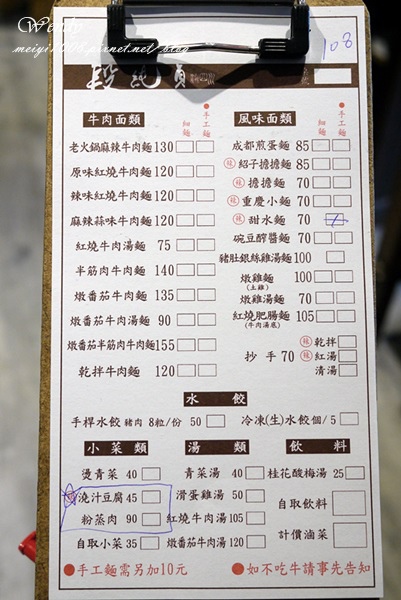 Wendy
meiyi1006.pixnet.net/blog
段純貞
108
牛肉麵類 細麵 手工麵
老火鍋麻辣牛肉麵 130
原味紅燒牛肉麵 120
辣味紅燒牛肉麵 120
麻辣蒜味牛肉麵 120
紅燒牛肉湯麵 75
半筋肉牛肉麵 140
燉番茄牛肉麵 135
燉番茄牛肉湯麵 90
燉番茄半筋肉牛肉麵 155
乾拌牛肉麵 120
風味麵類 細麵 手工麵
成都煎蛋麵 85
辣 紹子擔擔麵 85
辣 擔擔麵 70
辣 重慶小麵 70
辣 甜水麵 70
碗豆醡醬麵 70
豬肚銀絲雞湯麵 100
燉雞麵 100
(土雞)
燉雞湯麵 70
紅燒肥腸麵 105
(牛肉湯底)
抄手 70
辣 乾拌
辣 紅湯
清湯
水餃
手桿水餃 豬肉 8粒/份 50
冷凍(生)水餃 個/5
小菜類
燙青菜 40
澆汁豆腐 45
粉蒸肉 90
自取小菜 35
湯類
青菜湯 40
滑蛋雞湯 50
紅燒牛肉湯 105
燉番茄牛肉湯 120
飲料
桂花酸梅湯 25
自取飲料
計價滷菜
●手工麵需另加10元
●如不吃牛請事先告知